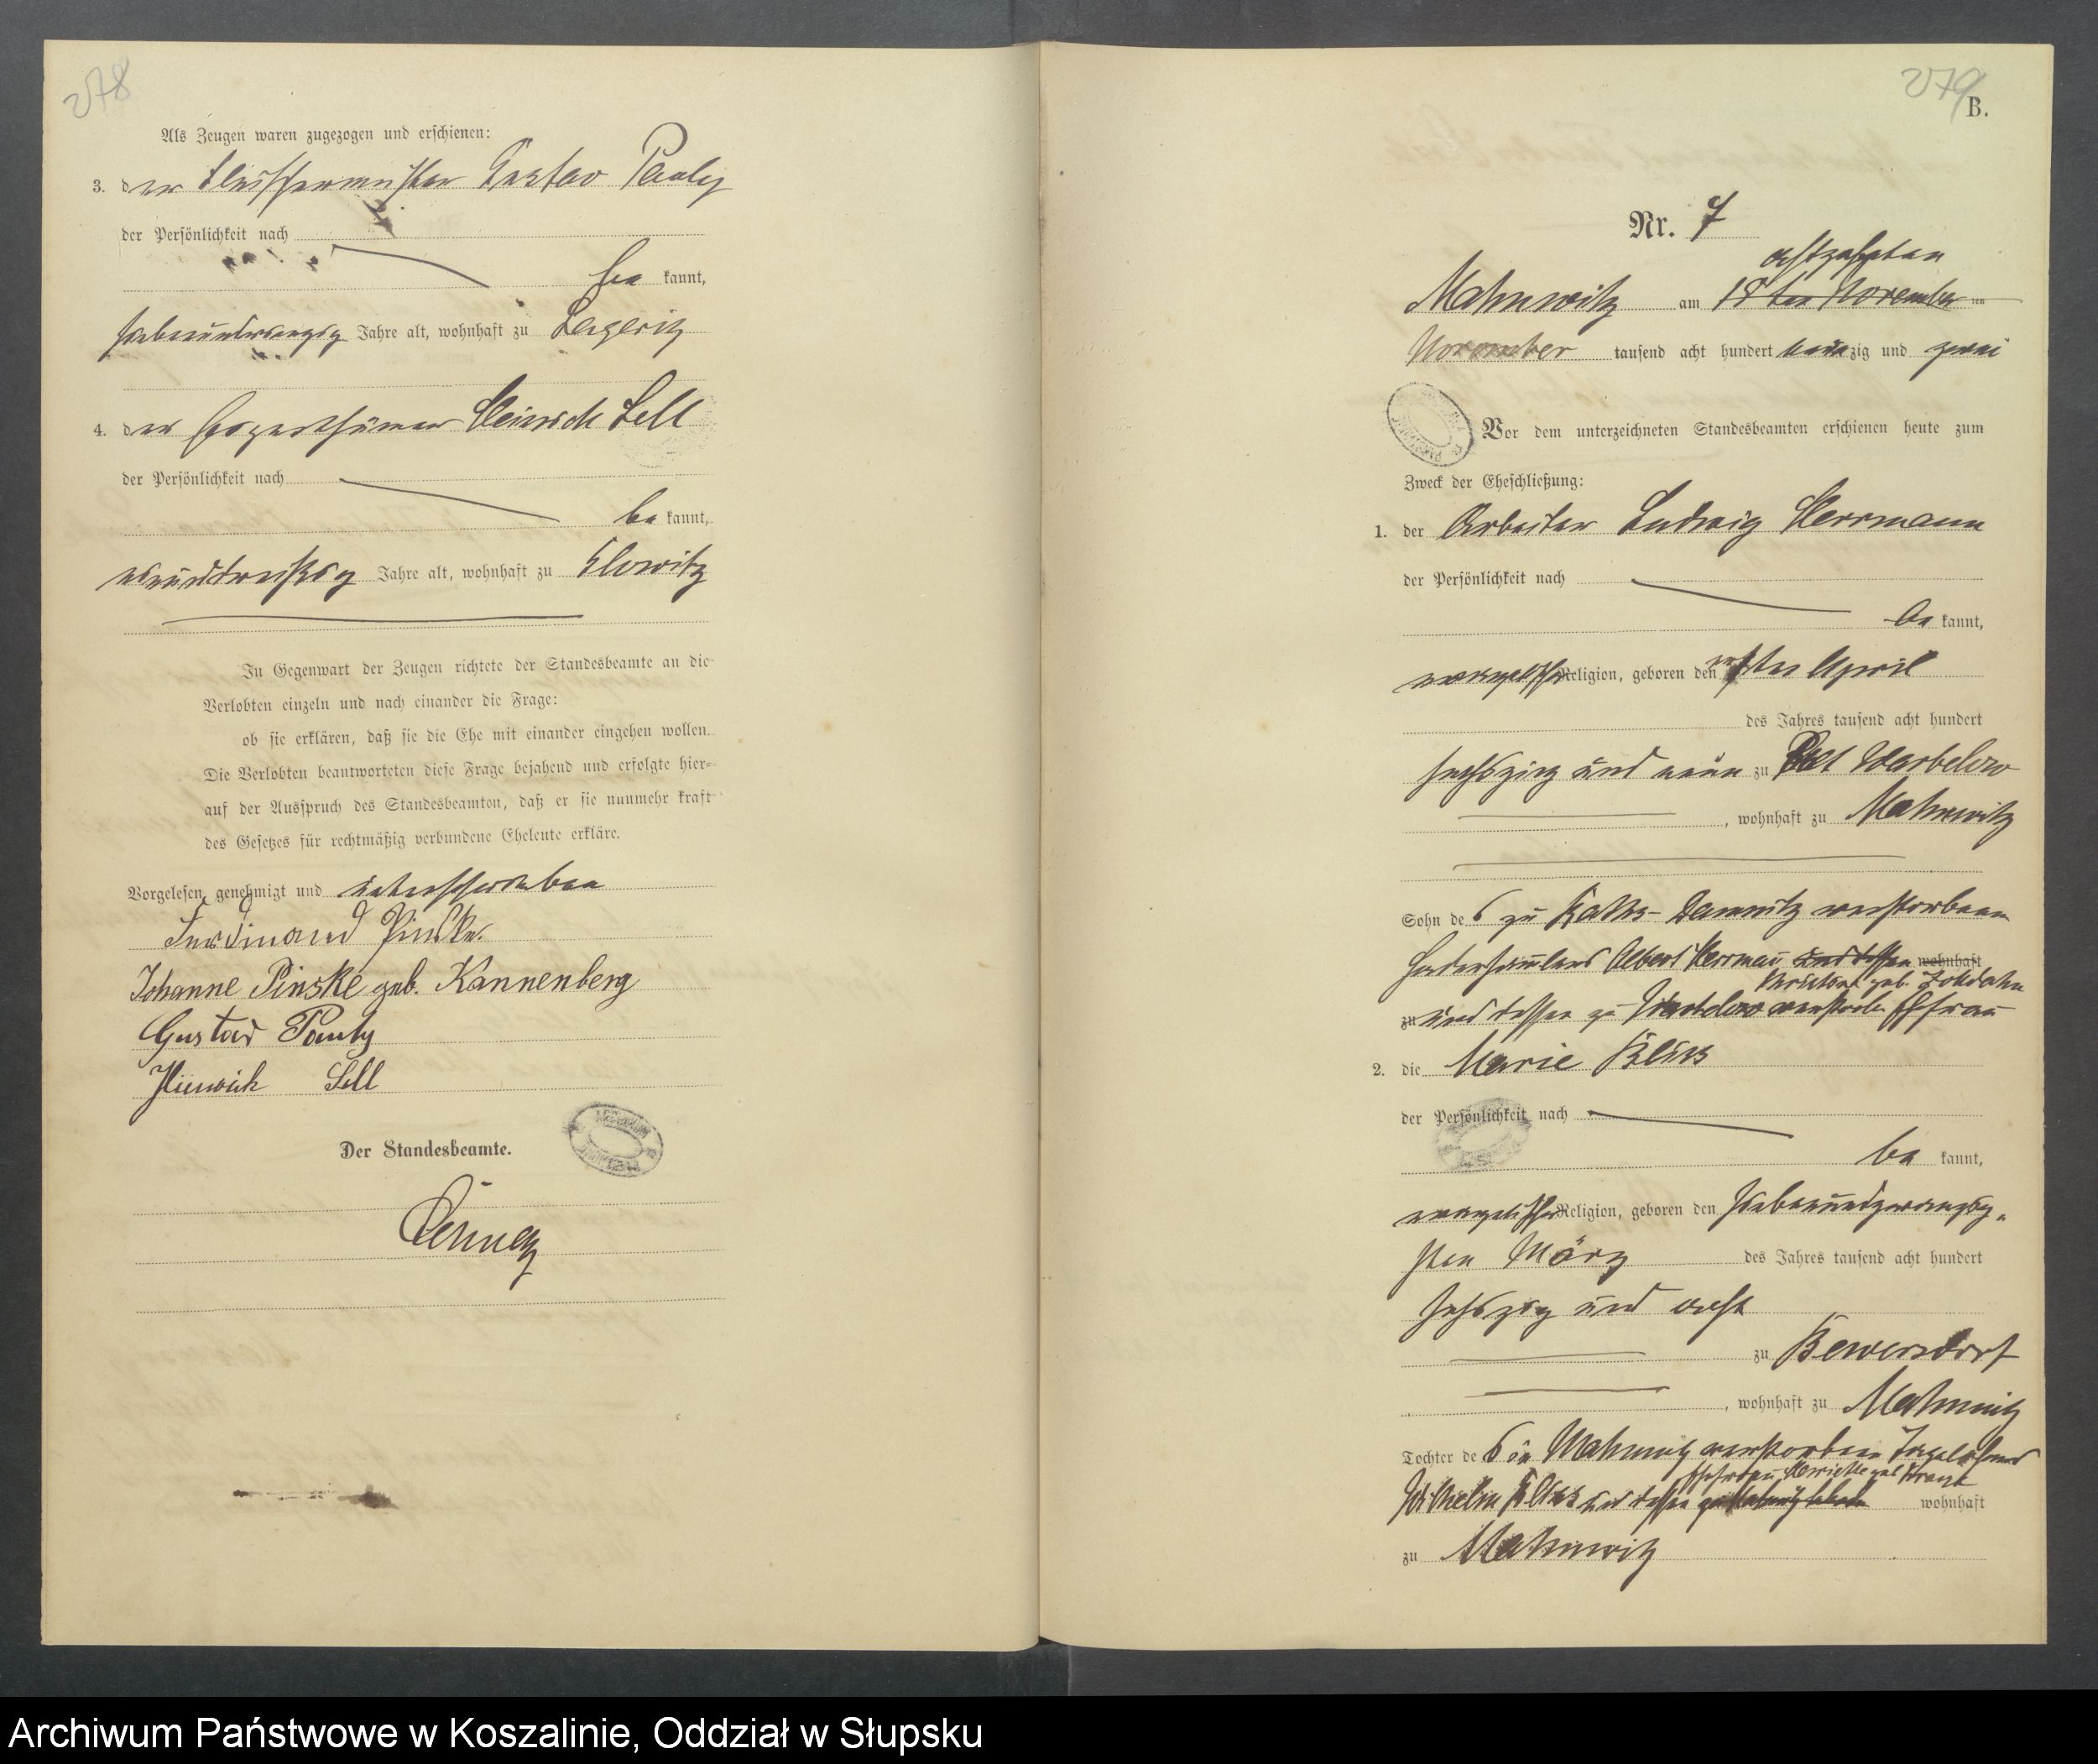 278
Als Zeugen waren zugezogen und erschienen:
3. der Fleischermeister Gustav Pauly
der Persönlichkeit nach
be kannt,
siebenundzwanzig Jahre alt, wohnhaft zu
4. der Eigenthümer Heinrich Sell
der Persönlichkeit nach
be kannt,
Jahre alt, wohnhaft zu Glowitz
In Gegenwart der Zeugen richtete der Standesbeamte an die
Verlobten einzeln und nach einander die Frage:
ob sie erklären, daß sie die Ehe mit einander eingehen wollen.
Die Verlobten beantworteten diese Frage bejahend und erfolgte hier-
auf der Ausspruch des Standesbeamten, daß er sie nunmehr kraft
des Gesetzes für rechtmäßig verbundene Eheleute erkläre.
Vorgelesen, genehmigt und unterschrieben
Ferdinand Pinske.
Johanne Pinske geb. Kannenberg
Gustav Pauly
Heinrich Sell
Der Standesbeamte.
279
B.
Nr. 7
achtzehnten
Mahnwitz am 18ten November ten
November tausend acht hundert neunzig und zwei
Vor dem unterzeichneten Standesbeamten erschienen heute zum
Zweck der Eheschließung:
1. der Arbeiter Ludwig Herrmann
der Persönlichkeit nach
be kannt,
evangelischer Religion, geboren den ersten April
des Jahres tausend acht hundert
sechszig und neun zu Warbelow
, wohnhaft zu Mahnwitz
Sohn des zu Raths-Damnitz verstorbenen
Albert Herrmann und dessen wohnhaft
geb.
zu und dessen zu Warbelow verstorb. Ehefrau
2. die Marie Klick
der Persönlichkeit nach
be kannt,
evangelischer Religion, geboren den siebenundzwanzig-
sten März des Jahres tausend acht hundert
sechszig und acht
zu Bewersdorf
, wohnhaft zu Mahnwitz
Tochter des in Mahnwitz verstorbenen Tagelöhners
Ehefrau Henriette geb.
Wilhelm und dessen wohnhaft
zu Mahnwitz
Archiwum Państwowe w Koszalinie, Oddział w Słupsku